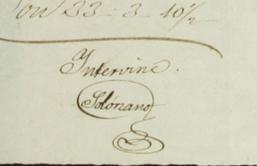 on 33 - 3 - 10½
Intervine.
Solorzano